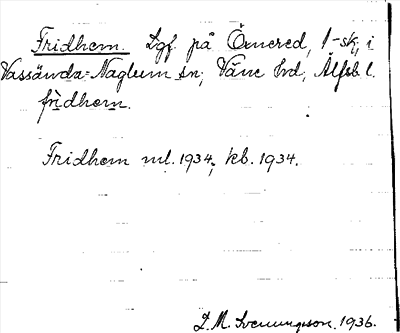 Fridhem. Lgf. på Önnered, 1-sk, i
Vassända-Naglum sn, Väne hd, Älfsb. l.
fridhem.
Fridhem ml. 1934, kb. 1934.
D. M. Svenungsson. 1936.